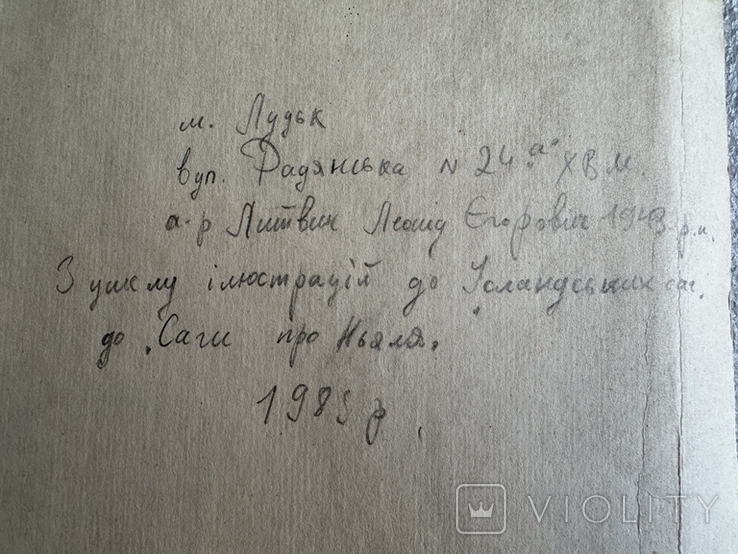 м. Луцьк
вул. Радянська N 24 "а" ХВМ.
а-р Литвин Леонід Єгорович 1943 р.н.
З циклу ілюстрацій до "Ісландських саг.
до "Саги про Ньяля"
1983 р.
VIOLITY